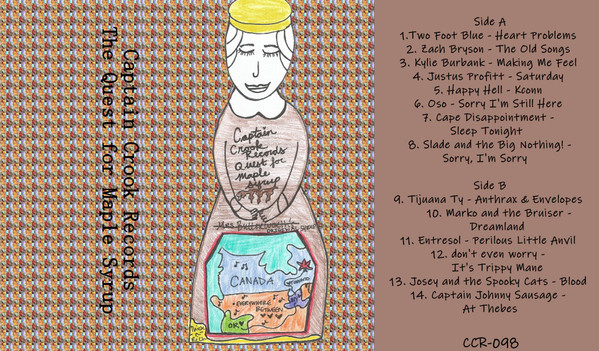 Captain Crook Records
The Quest for Maple Syrup
Captain
Crook
Records
Quest for
maple
syrup
Mrs Butterworth's
CANADA
EVERYWHERE
BETWEEN
OK
Side A
1.Two Foot Blue - Heart Problems
2. Zach Bryson - The Old Songs
3. Kylie Burbank - Making Me Feel
4. Justus Proffitt - Saturday
5. Happy Hell - Kconn
6. Oso - Sorry I'm Still Here
7. Cape Disappointment -
Sleep Tonight
8. Slade and the Big Nothing! -
Sorry, I'm Sorry
Side B
9. Tijuana Ty - Anthrax & Envelopes
10. Marko and the Bruiser -
Dreamland
11. Entresol - Perilous Little Anvil
12. don't even worry -
It's Trippy Mane
13. Josey and the Spooky Cats - Blood
14. Captain Johnny Sausage -
At Thebes
CCR-098